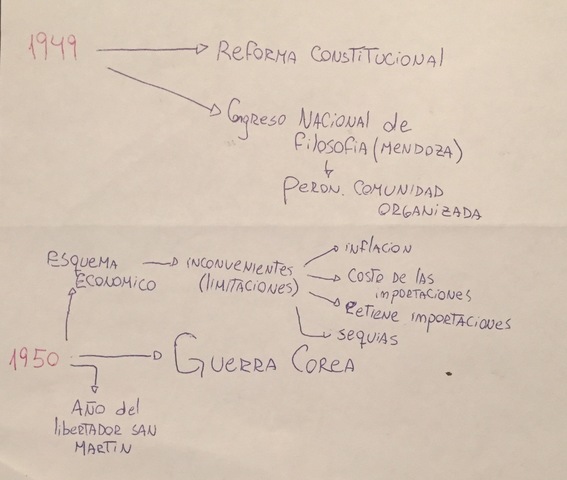 1949
REFORMA CONSTITUCIONAL
Congreso NACIONAL de
filosofia (MENDOZA)
PERON. COMUNIDAD
ORGANIZADA
ESQUEMA
ECONOMICO
INCONVENIENTES
(LIMITACIONES)
INFLACION
COSTO DE LAS
IMPORTACIONES
RETIENE IMPORTACIONES
SEQUIAS
1950
GUERRA COREA
AÑO del
libERTADOR SAN
MARTIN